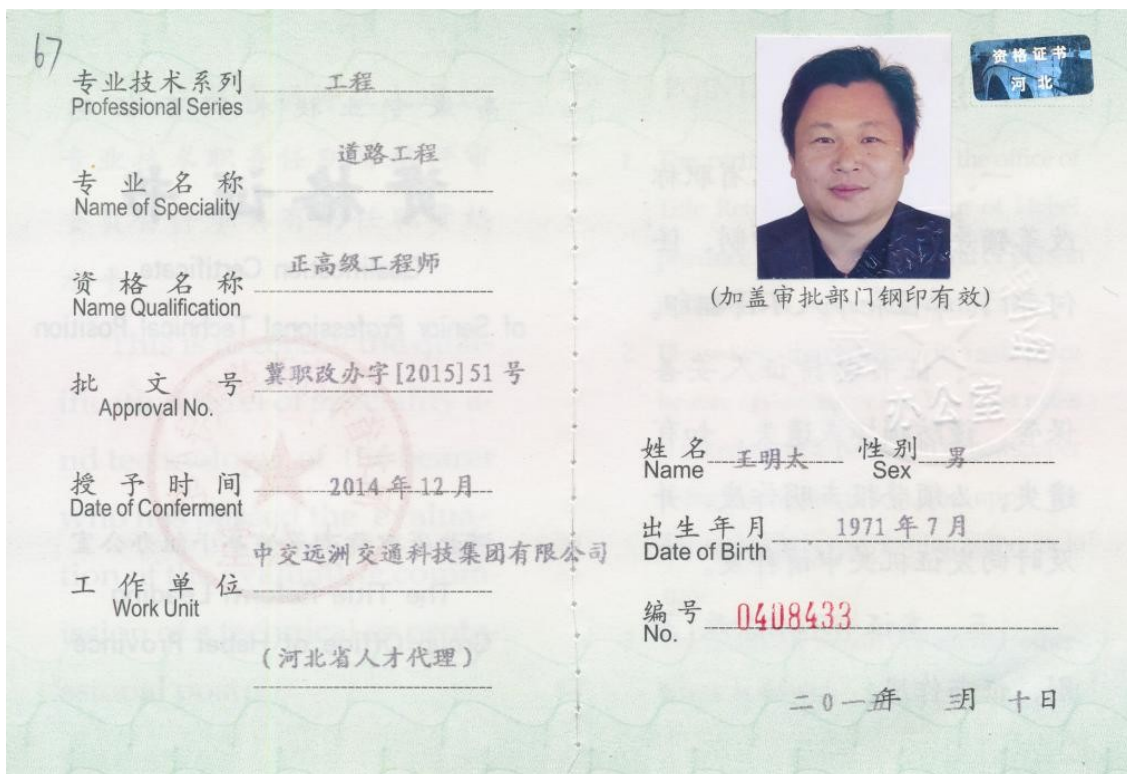 67
专业技术系列 工程
Professional Series
道路工程
专业名称
Name of Speciality
正高级工程师
资格名称
Name Qualification
批文号 冀职改办字[2015]51 号
Approval No.
授予时间 2014 年 12 月
Date of Conferment
中交远洲交通科技集团有限公司
工作单位
Work Unit
(河北省人才代理)
资格证书
河北
(加盖审批部门钢印有效)
办公室
姓名 王明太 性别 男
Name Sex
出生年月 1971 年 7 月
Date of Birth
编号 0408433
No.
二0一五年 三月 十日